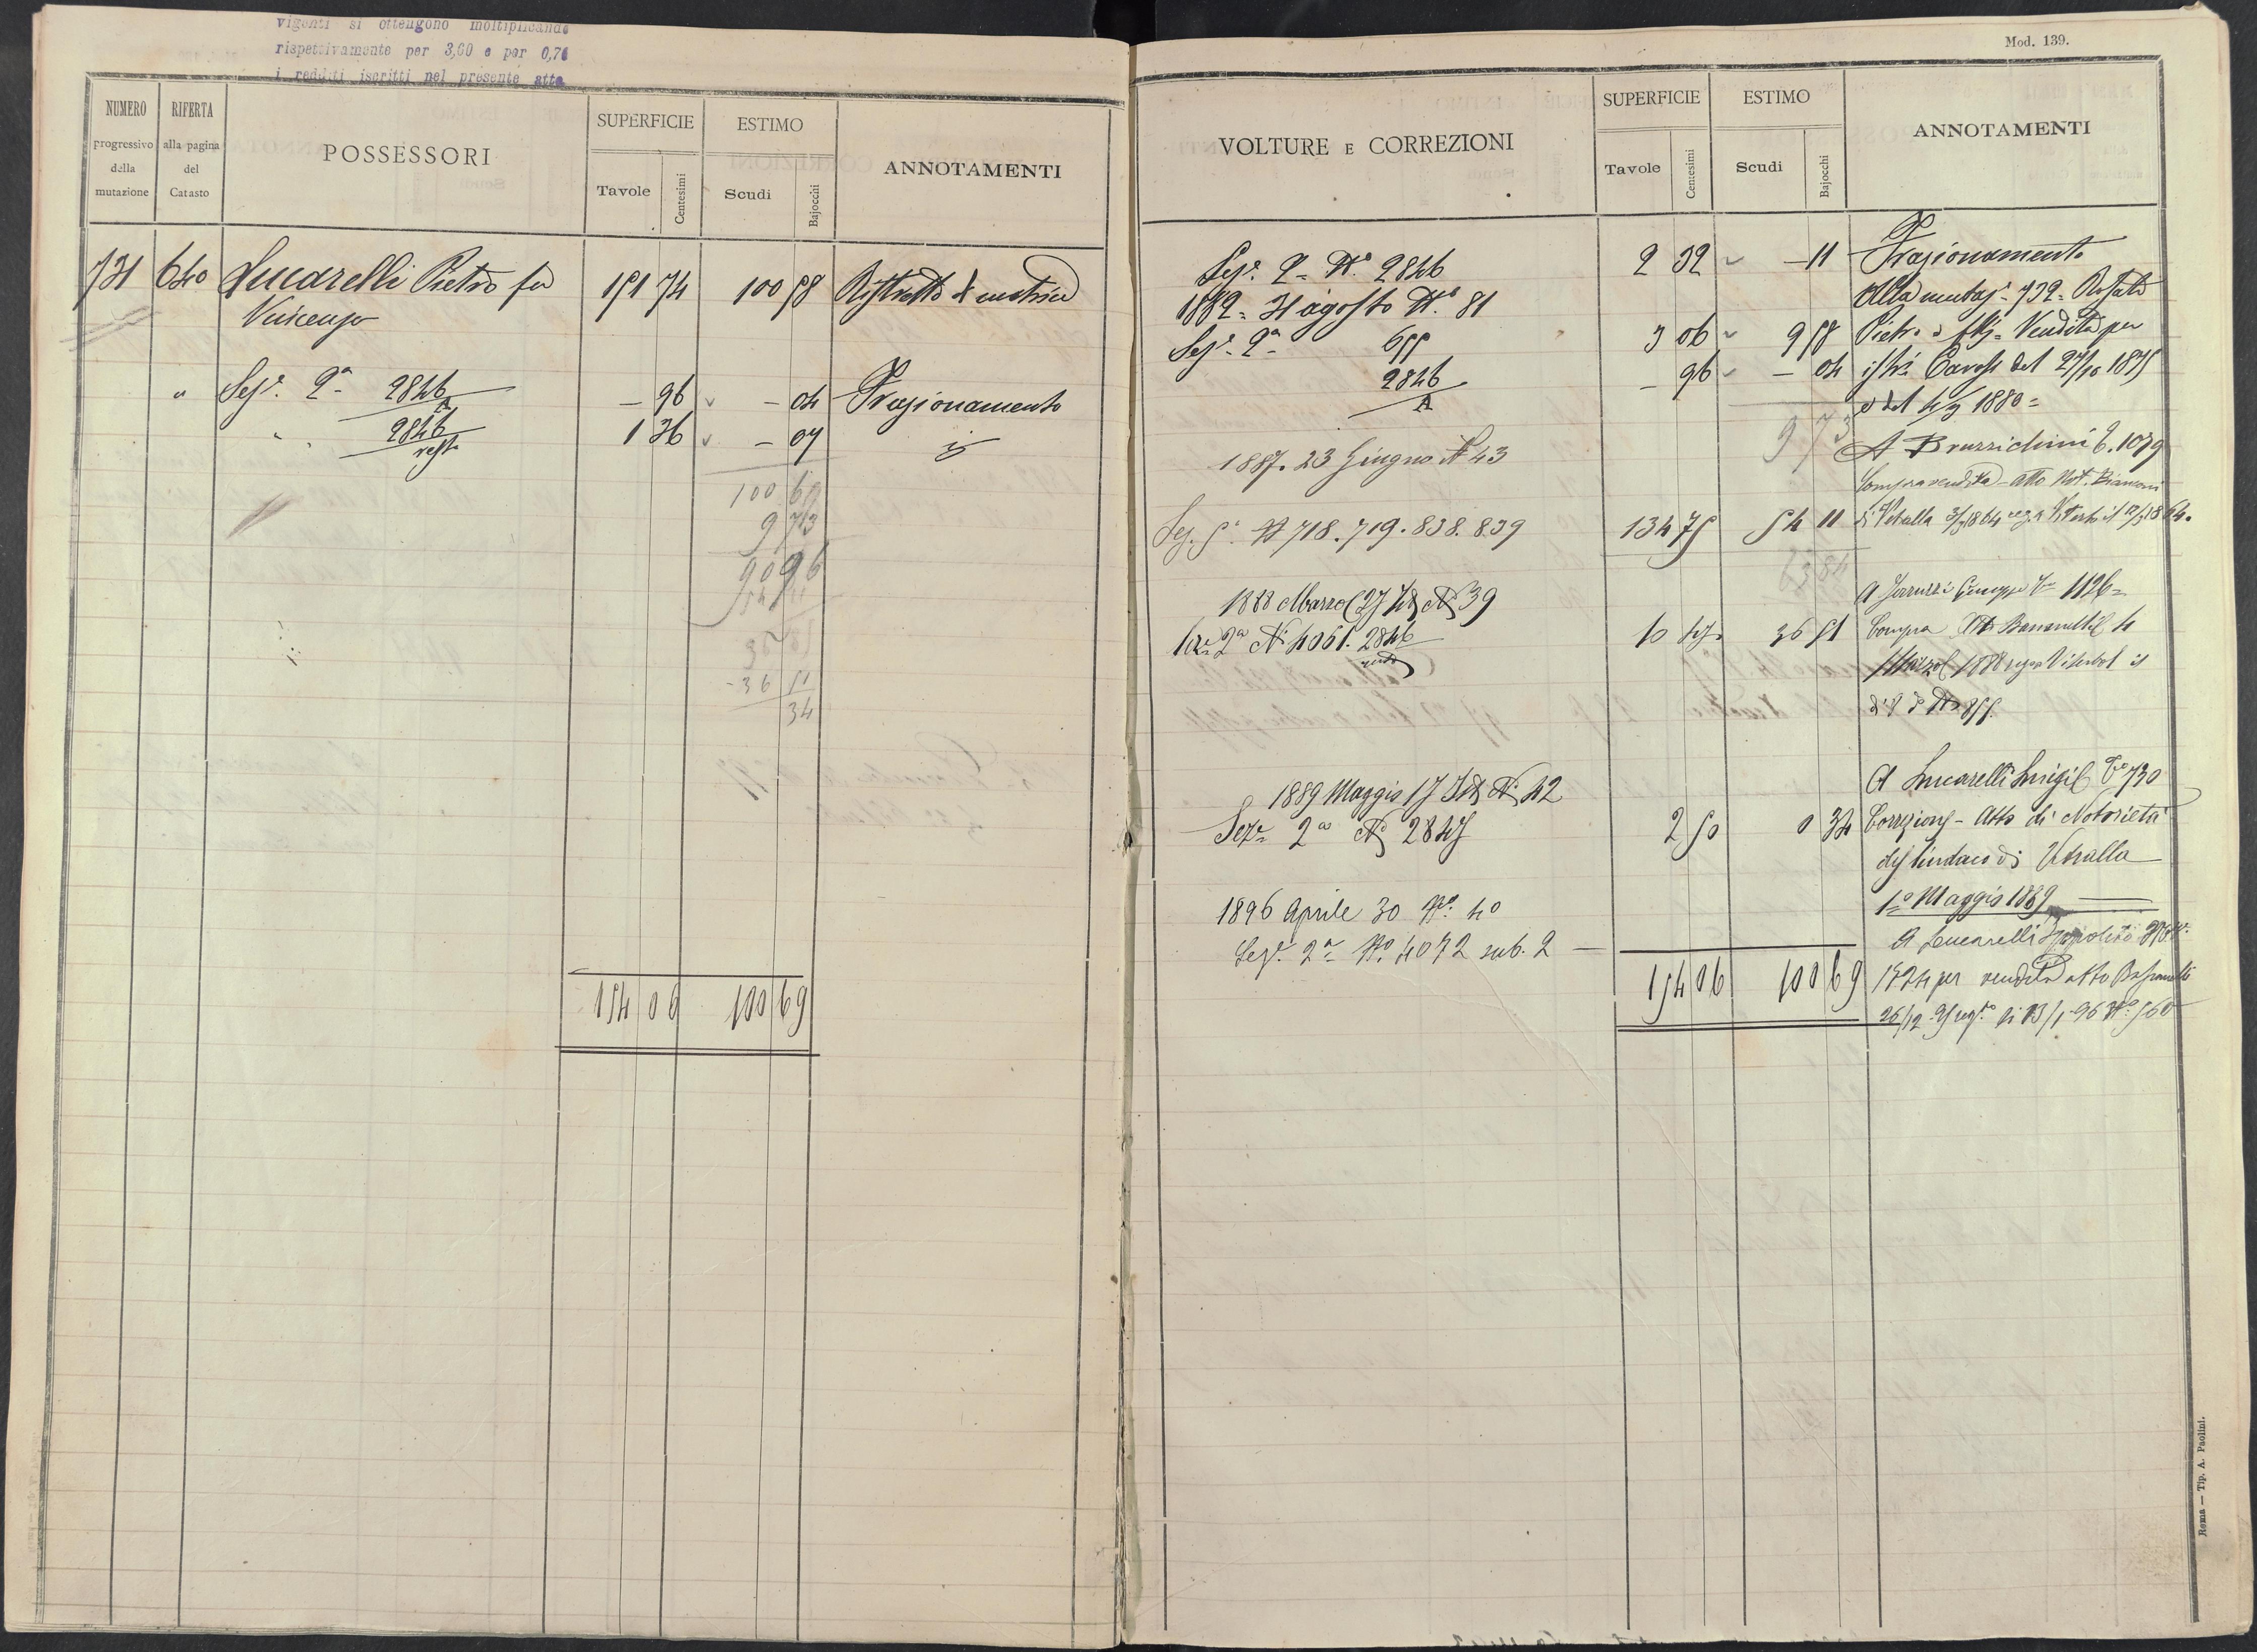 vigenti si ottengono moltiplicando
rispettivamente per 3,60 e per 0,76
i redditi iscritti nel presente atto
NUMERO progressivo della mutazione
RIFERTA alla pagina del Catasto
POSSESSORI
SUPERFICIE
Tavole Centesimi
ESTIMO
Scudi Bajocchi
ANNOTAMENTI
731 640 Lucarelli Pietro fu 151 74 100 58 Ristretto di matrice
Vincenzo
" Sez.e 2a 2846/A — 96 — 04 Frazionamento
" " 2846/rest. 1 36 — 07 id
100 69
9 73
90 96
54 11
36 85
36 51
34
154 06 100 69
Mod. 139.
VOLTURE E CORREZIONI
SUPERFICIE
Tavole Centesimi
ESTIMO
Scudi Bajocchi
ANNOTAMENTI
Sez.e 2a No 2846 2 32 — 11 Frazionamento
1882 = 31 agosto No 81 Alla mutaz.e 732 = Rosati
Sez.e 2a 655 3 06 9 58 Pietro Vendita per
2846/A — 96 — 04 del 27/10 1875
e del 1880 =
9 73
1887. 23 Giugno N 43 A Bruzzichini 1079
Compravendita - atto Not. Bianconi
Sez. 5a N 718. 719. 838. 839 134 75 54 11 di Vetralla 1864
63 84
1888 Marzo 27 No 39 A Giuseppe 1126 =
2a No 4061. 2846/resto 10 47 36 51 Compra
Marzo 1888 Viterbo il
No 855.
1889 Maggio 17 No 42 A Lucarelli Luigi 730
Seze 2a No 2847 2 50 0 34 Correzione - Atto di Notorietà
del Sindaco di Vetralla
1o Maggio 1889
1896 Aprile 30 No 40
Sez.e 2a No 4072 sub. 2 — A Lucarelli Ippolito
154 06 100 69 1524 per vendita atto
26/12 95 13/1 96 No 560
Roma — Tip. A. Paolini.